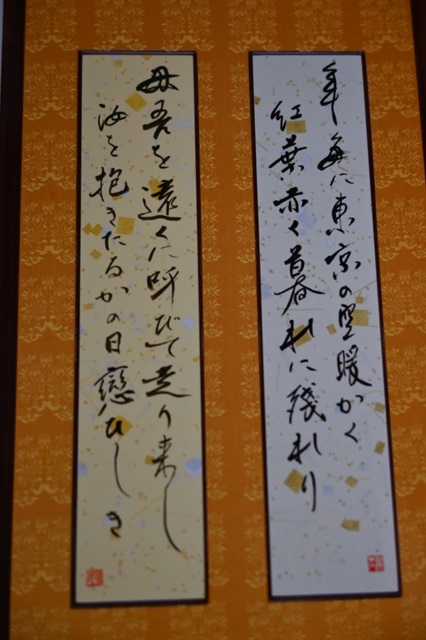 年毎に東京の 暖かく
紅葉赤く暮れに残れり
母吾を遠くに呼びて走り来し
汝を抱きたるかの日戀ひしき